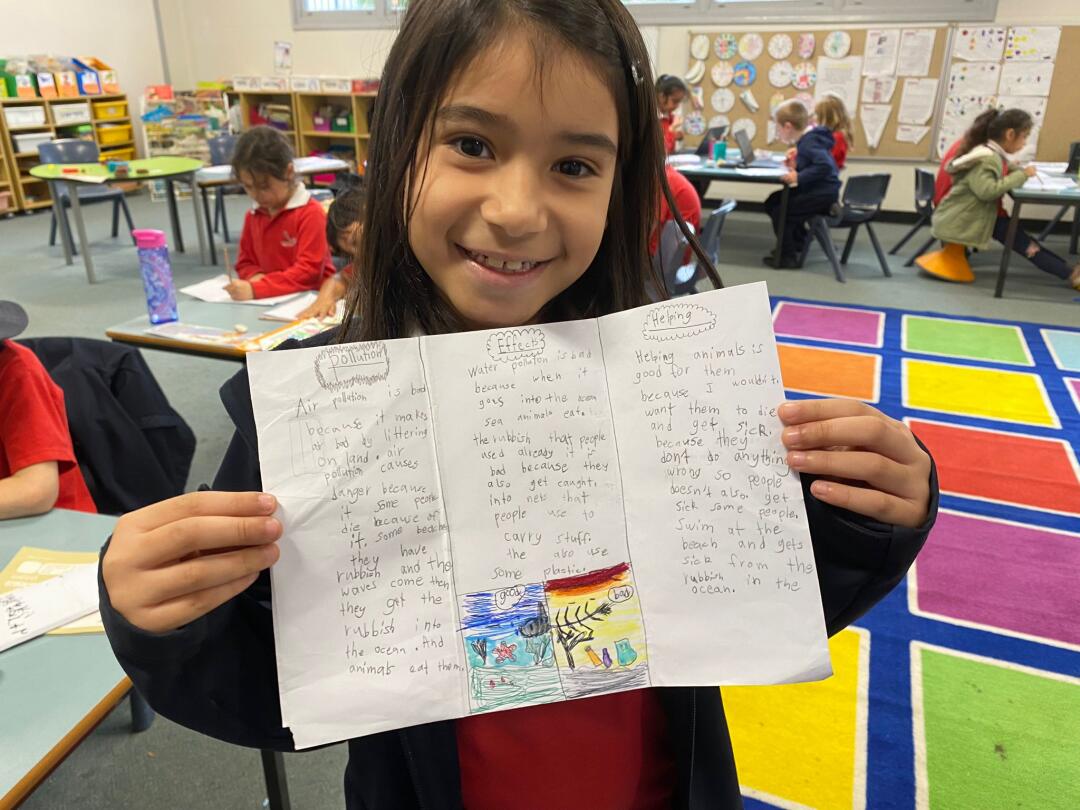 Pollution
Air pollution is bad
because it makes
air bad by littering
on land. air
pollution causes
danger because
it some people
die because of
it. some beaches
they have
rubbish and the
waves come then
they get the
rubbish into
the ocean. And
animals eat them.
Effect
Water polluton is bad
because when it
goes into the ocean
sea animals eat.
the rubbish that people
used already it is
bad because they
also get caught.
into nets that
people use to
carry stuff.
the also use
some plastic.
good
bad
Helping
Helping animals is
good for them
because I wouldn't
want them to die
and get sick.
because they
don't do anything
wrong so people
doesn't also get
sick some people.
swim at the
beach and gets
sick from the
rubbish in the
ocean.